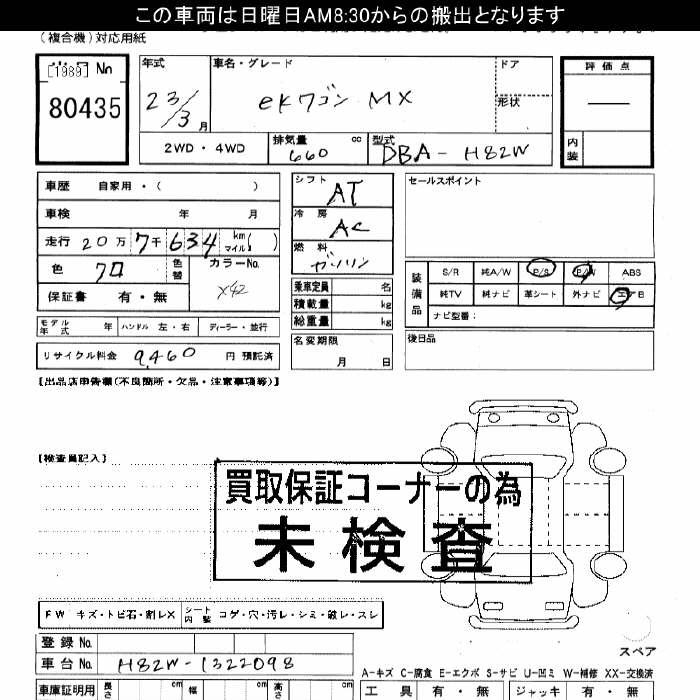 この車両は日曜日AM8:30からの搬出となります
(複合機)対応用紙
[1989] No
80435
年式
23/3月
車名・グレード
ekワゴン MX
ドア
形状
評価点
—
内装
2WD・4WD
排気量 cc
660
型式
DBA-H82W
車歴 自家用・( )
車検 年 月
走行 20万7千634 km マイル( )
色 クロ
色替
カラーNo.
X42
保証書 有・無
モデル年式 年 ハンドル 左・右 ディーラー・並行
リサイクル料金 9,460 円 預託済
シフト
AT
冷房
AC
燃料
ガソリン
乗車定員 名
積載量 kg
総重量 kg
名変期限
月 日
セールスポイント
装備品
S/R 純A/W P/S P/W ABS
純TV 純ナビ 革シート 外ナビ エアB
ナビ型番:
後日品
【出品店申告欄(不良箇所・欠品・注意事項等)】
【検査員記入】
買取保証コーナーの為
未検査
FW キズ・トビ石・割レX シート内装 コゲ・穴・汚レ・シミ・破レ・スレ
登録No.
車台No. H82W-1322098
車庫証明用 長さ cm 幅 cm 高さ cm
スペア
A-キズ C-腐食 E-エクボ S-サビ U-凹ミ W-補修 XX-交換済
工具 有・無 ジャッキ 有・無